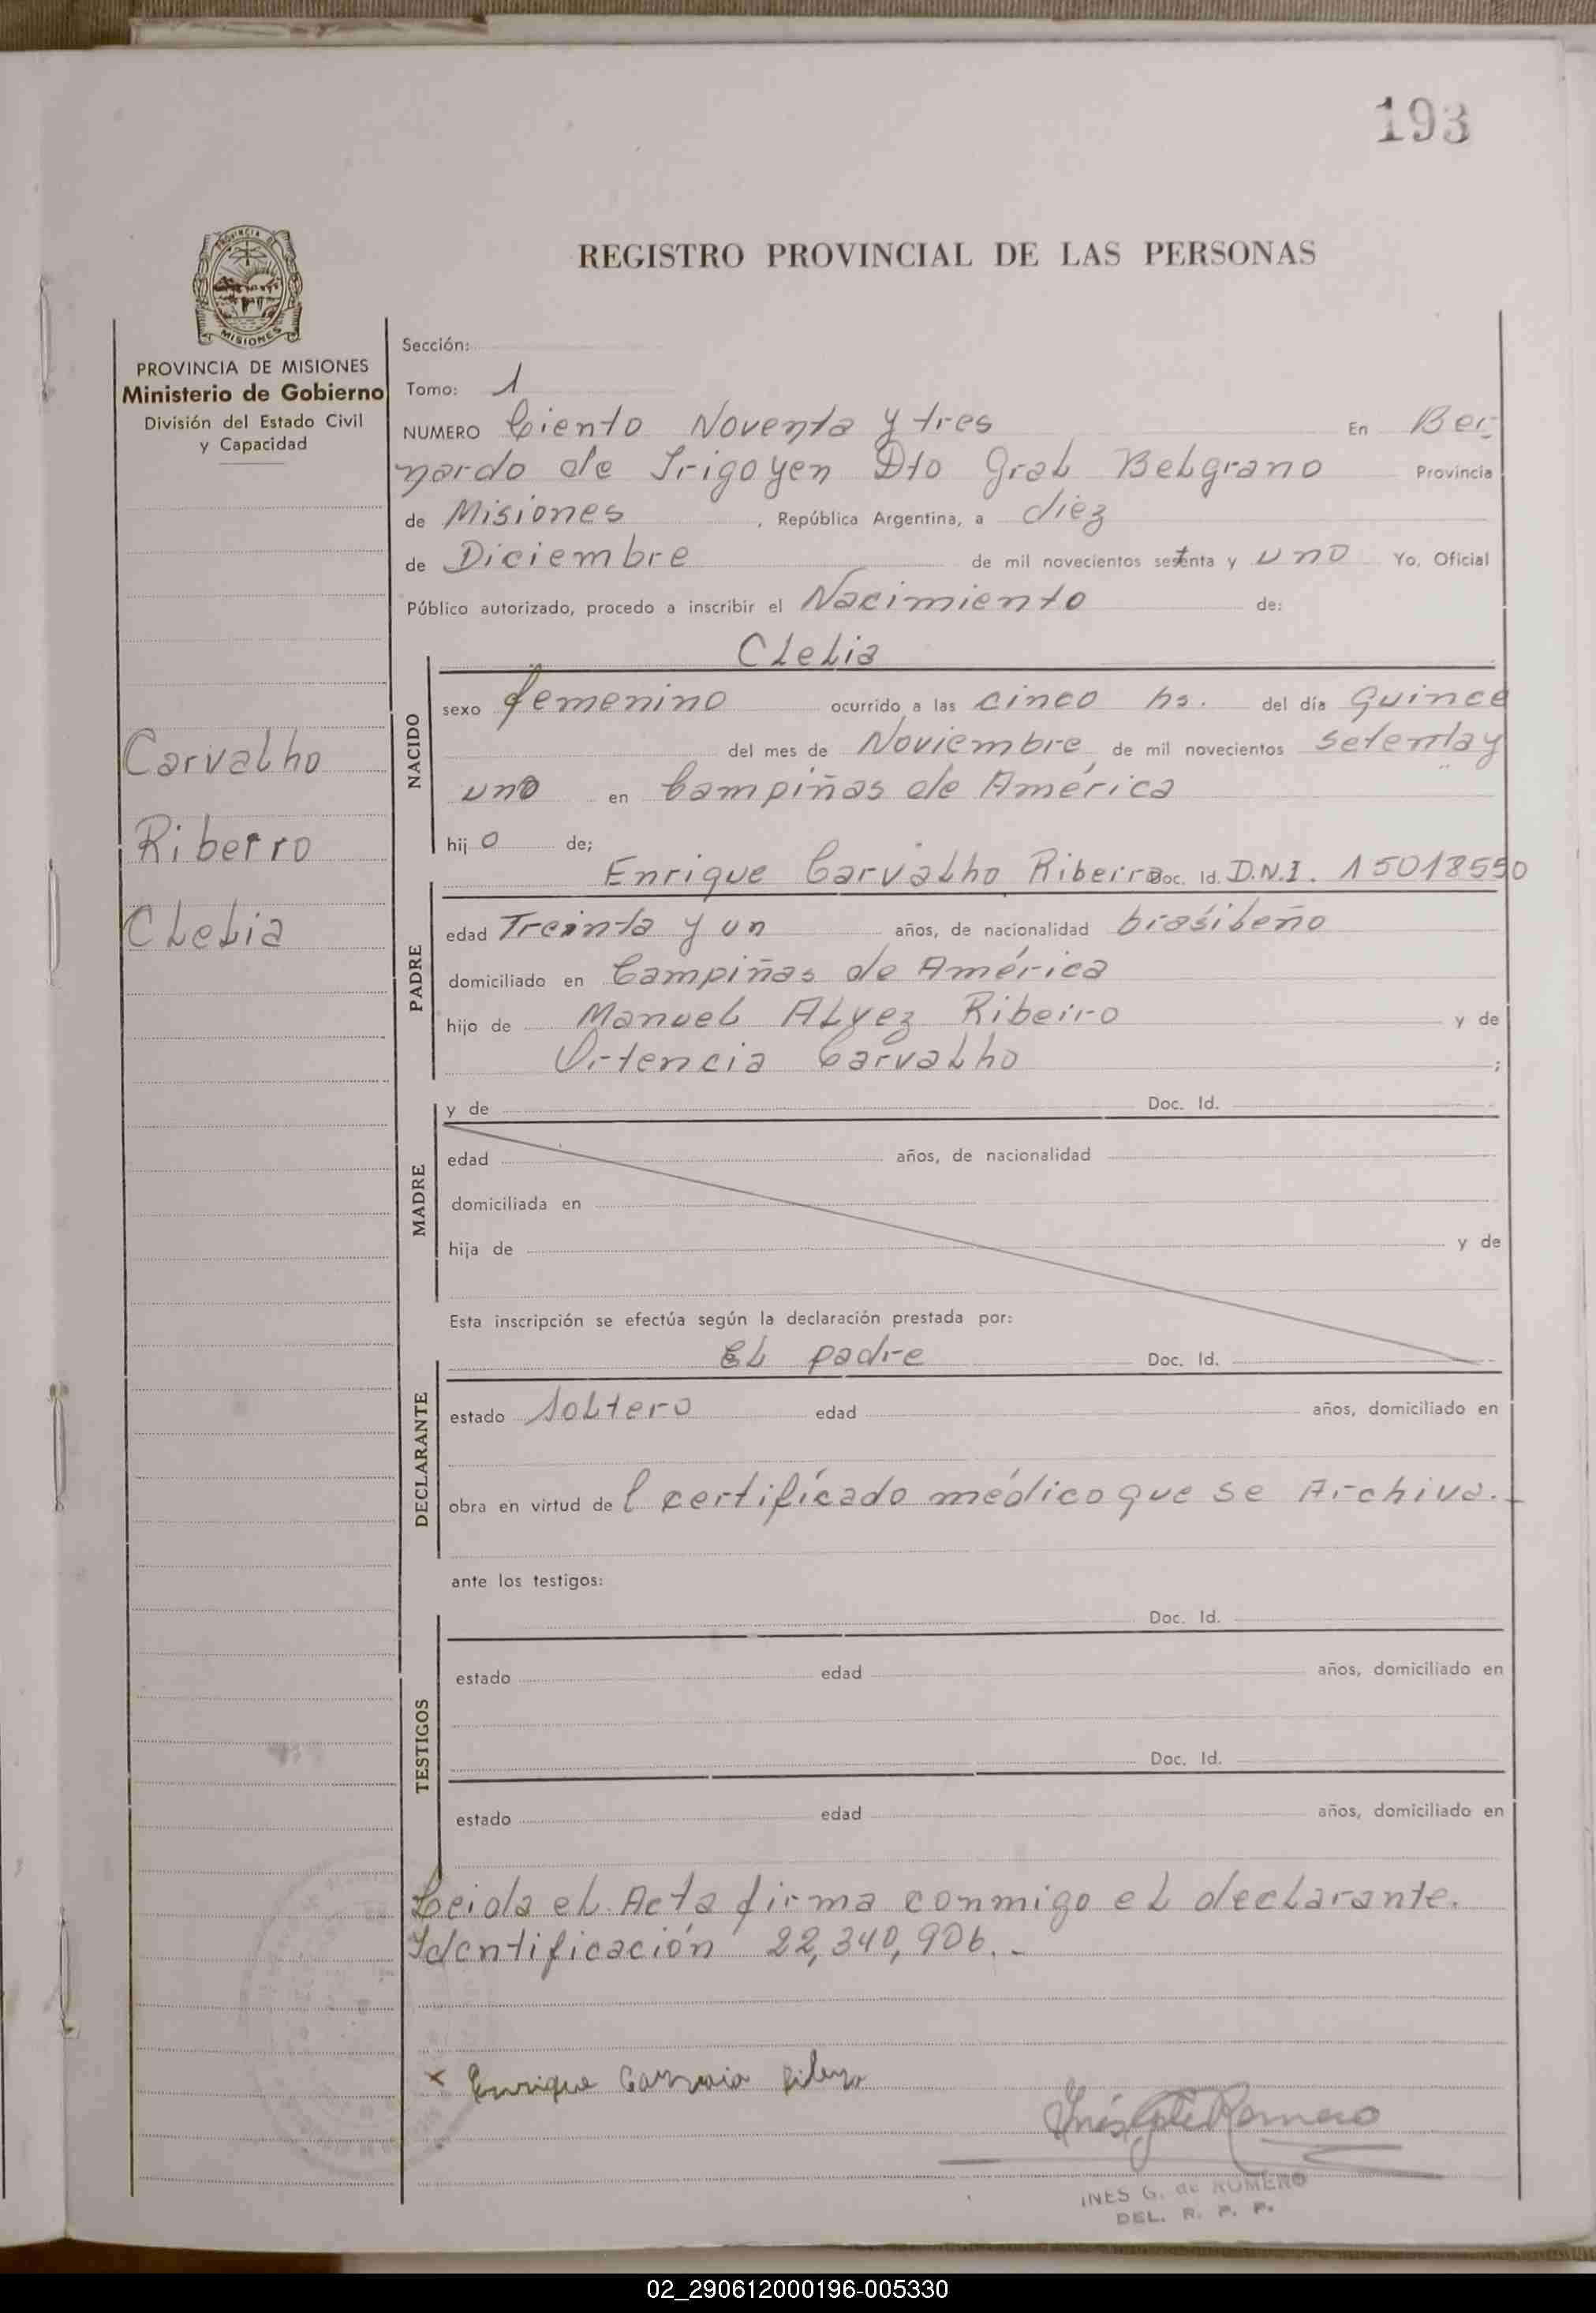 193
REGISTRO PROVINCIAL DE LAS PERSONAS
PROVINCIA DE MISIONES
PROVINCIA DE MISIONES
Ministerio de Gobierno
División del Estado Civil
y Capacidad
Carvalho
Riberro
Clelia
Sección:
Tomo: 1
NUMERO Ciento Noventa y tres En Ber-
nardo de Irigoyen Dto Gral Belgrano Provincia
de Misiones, República Argentina, a diez
de Diciembre de mil novecientos setenta y uno Yo, Oficial
Público autorizado, procedo a inscribir el Nacimiento de:
Clelia
NACIDO
sexo femenino ocurrido a las cinco hs. del día quince
del mes de Noviembre de mil novecientos setenta y
uno en Campiñas de América
hijo de;
Enrique Carvalho Ribeiro Doc. Id. D.N.I. 15018550
PADRE
edad Treinta y un años, de nacionalidad brasileño
domiciliado en Campiñas de América
hijo de Manuel Alvez Ribeiro y de
Ortencia Carvalho ;
MADRE
y de Doc. Id.
edad años, de nacionalidad
domiciliada en
hija de y de
Esta inscripción se efectúa según la declaración prestada por:
El padre Doc. Id.
DECLARANTE
estado Soltero edad años, domiciliado en
obra en virtud del certificado médico que se Archiva.-
ante los testigos:
Doc. Id.
TESTIGOS
estado edad años, domiciliado en
Doc. Id.
estado edad años, domiciliado en
Leida el Acta firma conmigo el declarante.
Identificación 22,340,906.-
x Enrique
Inés G. de Romero
INES G. de ROMERO
DEL. R. P. P.
02_290612000196-005330